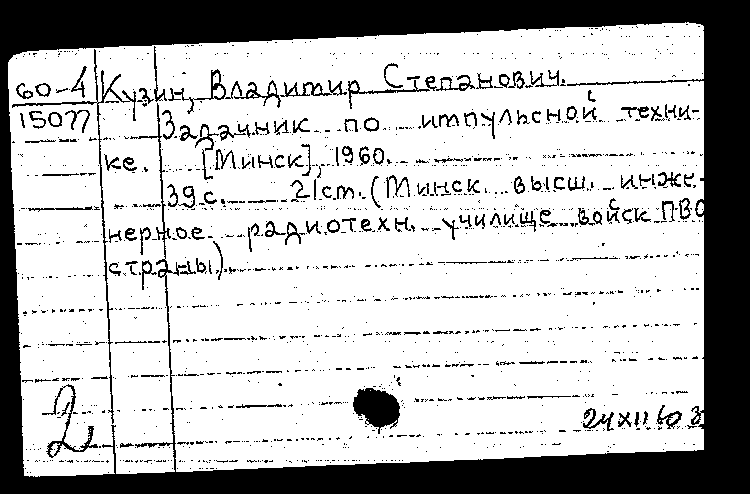 60-4 Кузин, Владимир Степанович.
15077 Задачник по импульсной техни-
ке. [Минск], 1960.
39 с. 21 см. (Минск. высш. инже-
нерное радиотехн. училище войск ПВО
страны).
2
24 XII 60